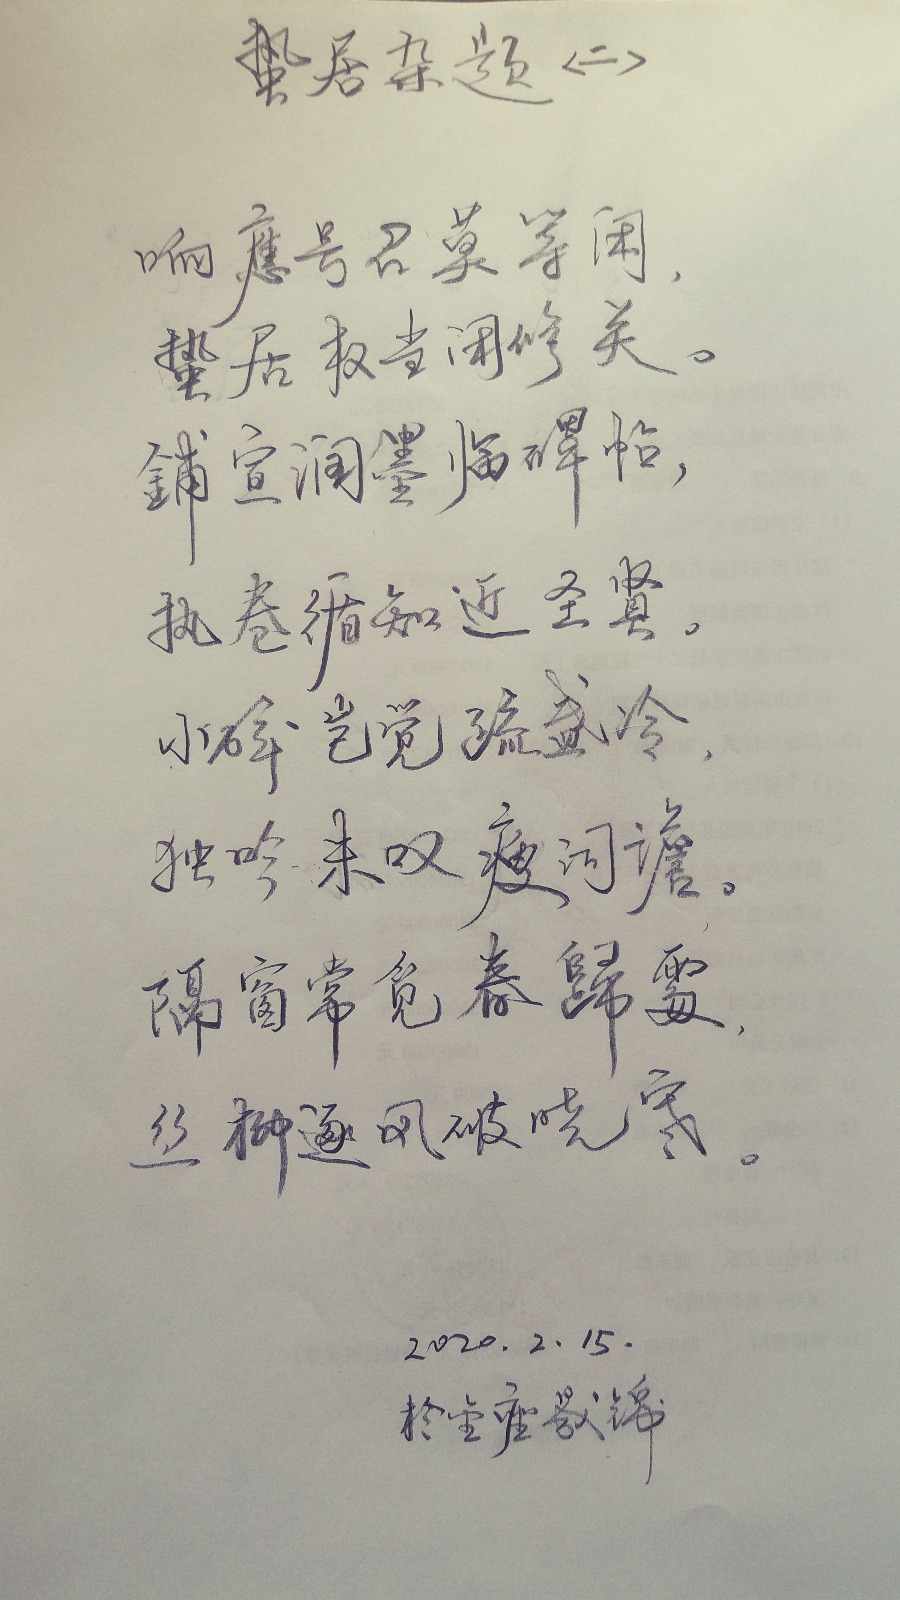 蛰居杂题<二>
响應号召莫等闲，
蛰居权当闭修关。
鋪宣润墨临碑帖，
执卷循知近圣贤。
小碎岂觉疏盏冷，
独吟未叹瘦词谵。
隔窗常觅春歸处，
丝柳逐风破晓寒。
2020.2.15.
於金座